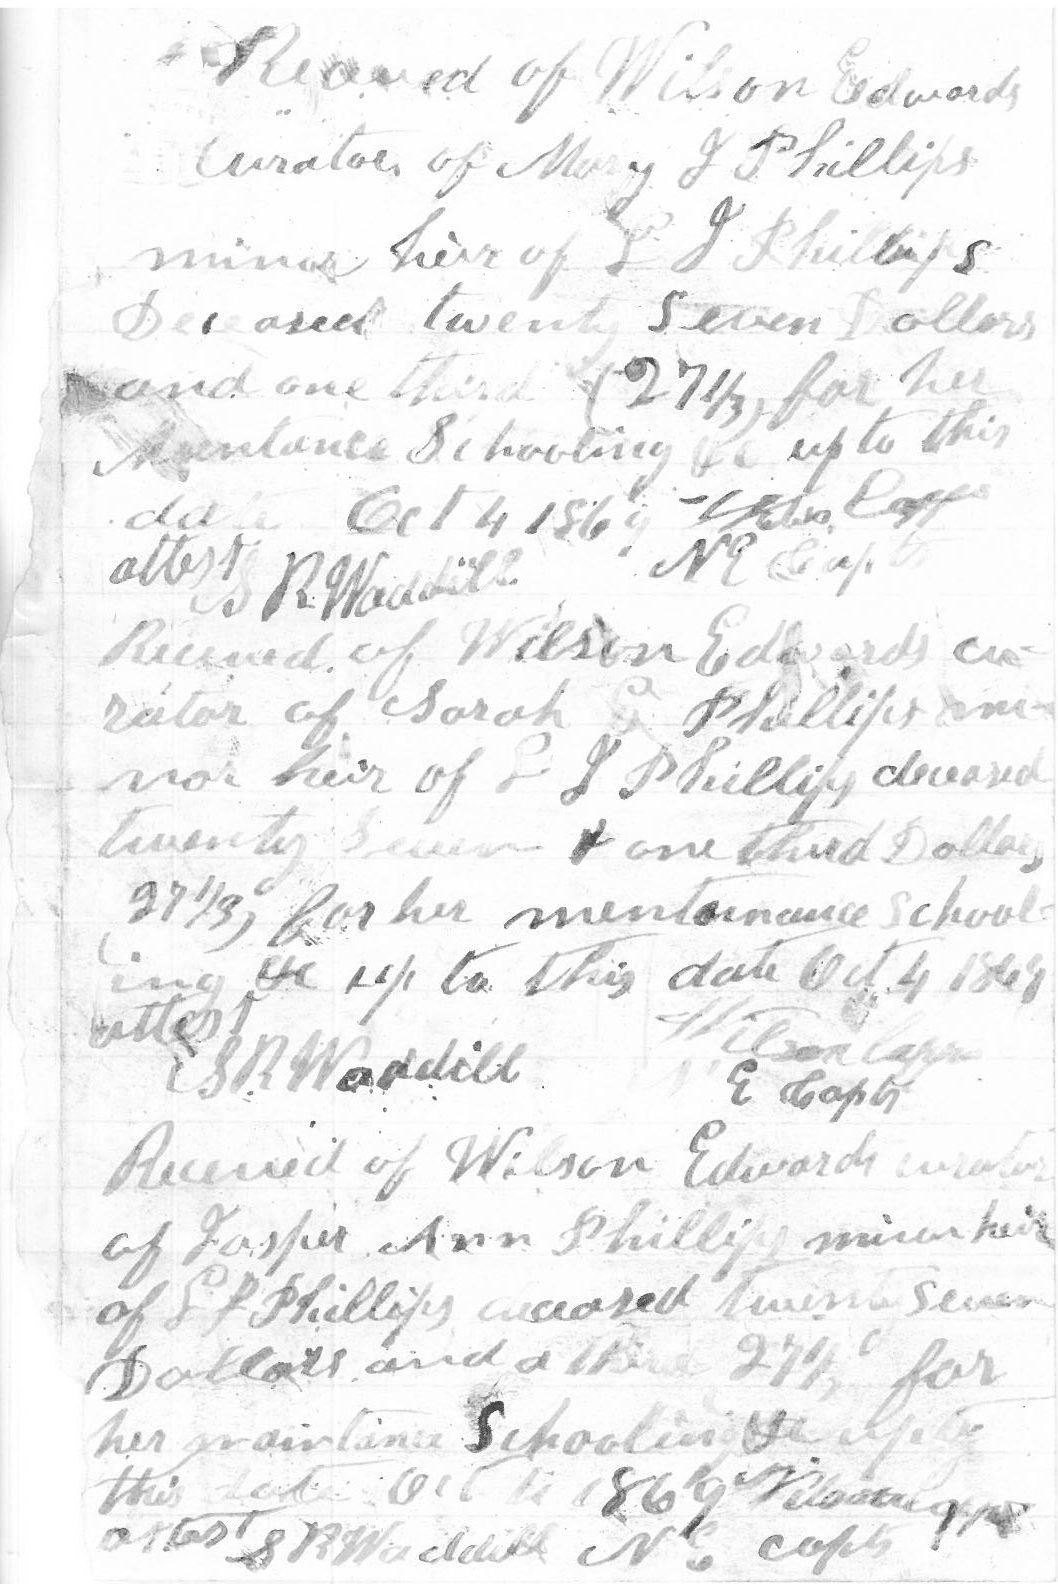 Received of Wilson Edwards
Curator of Mary J Phillips
minor heir of L J Phillips
Deceased twenty Seven Dollars
and one third (27 1/3) for her
mentance Schooling &c up to this
date Oct 4 1869
attest N E Capts
S R Waddill
Received of Wilson Edwards cu-
rator of Sarah E Phillips mi-
nor heir of L J Phillips deceased
twenty Seven & one third Dollars
27 1/3) for her mentainance School-
ing &c up to this date Oct 4 1869
attest Wilson Capps
S R Waddill E Capts
Received of Wilson Edwards curator
of Jasper Ann Phillips minor heir
of L J Phillips deceased twenty Seven
Dollars and a third 27 1/3 for
her maintance Schooling &c up to
this date Oct 4 1869 Wilson Capps
attest S R Waddill N E capts